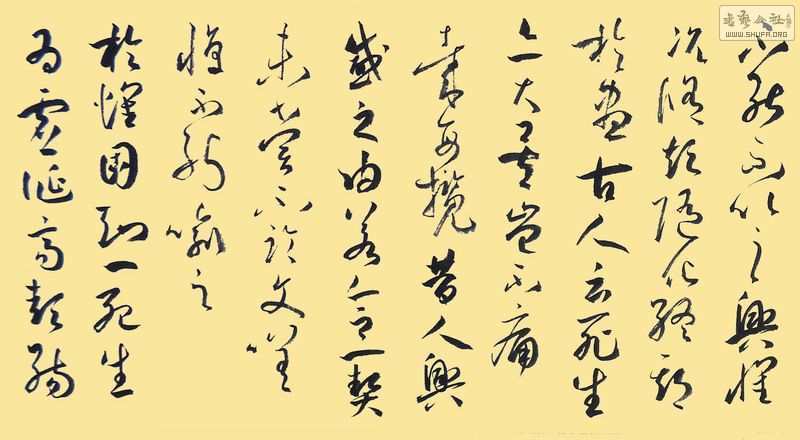 不能不以之興懷
況脩短隨化終期
於盡古人云死生
亦大矣豈不痛
哉每攬昔人興
感之由若合一契
未嘗不臨文嗟
悼不能喻之
於懷固知一死生
為虛誕齊彭殤
书艺公社
WWW.SHUFA.ORG